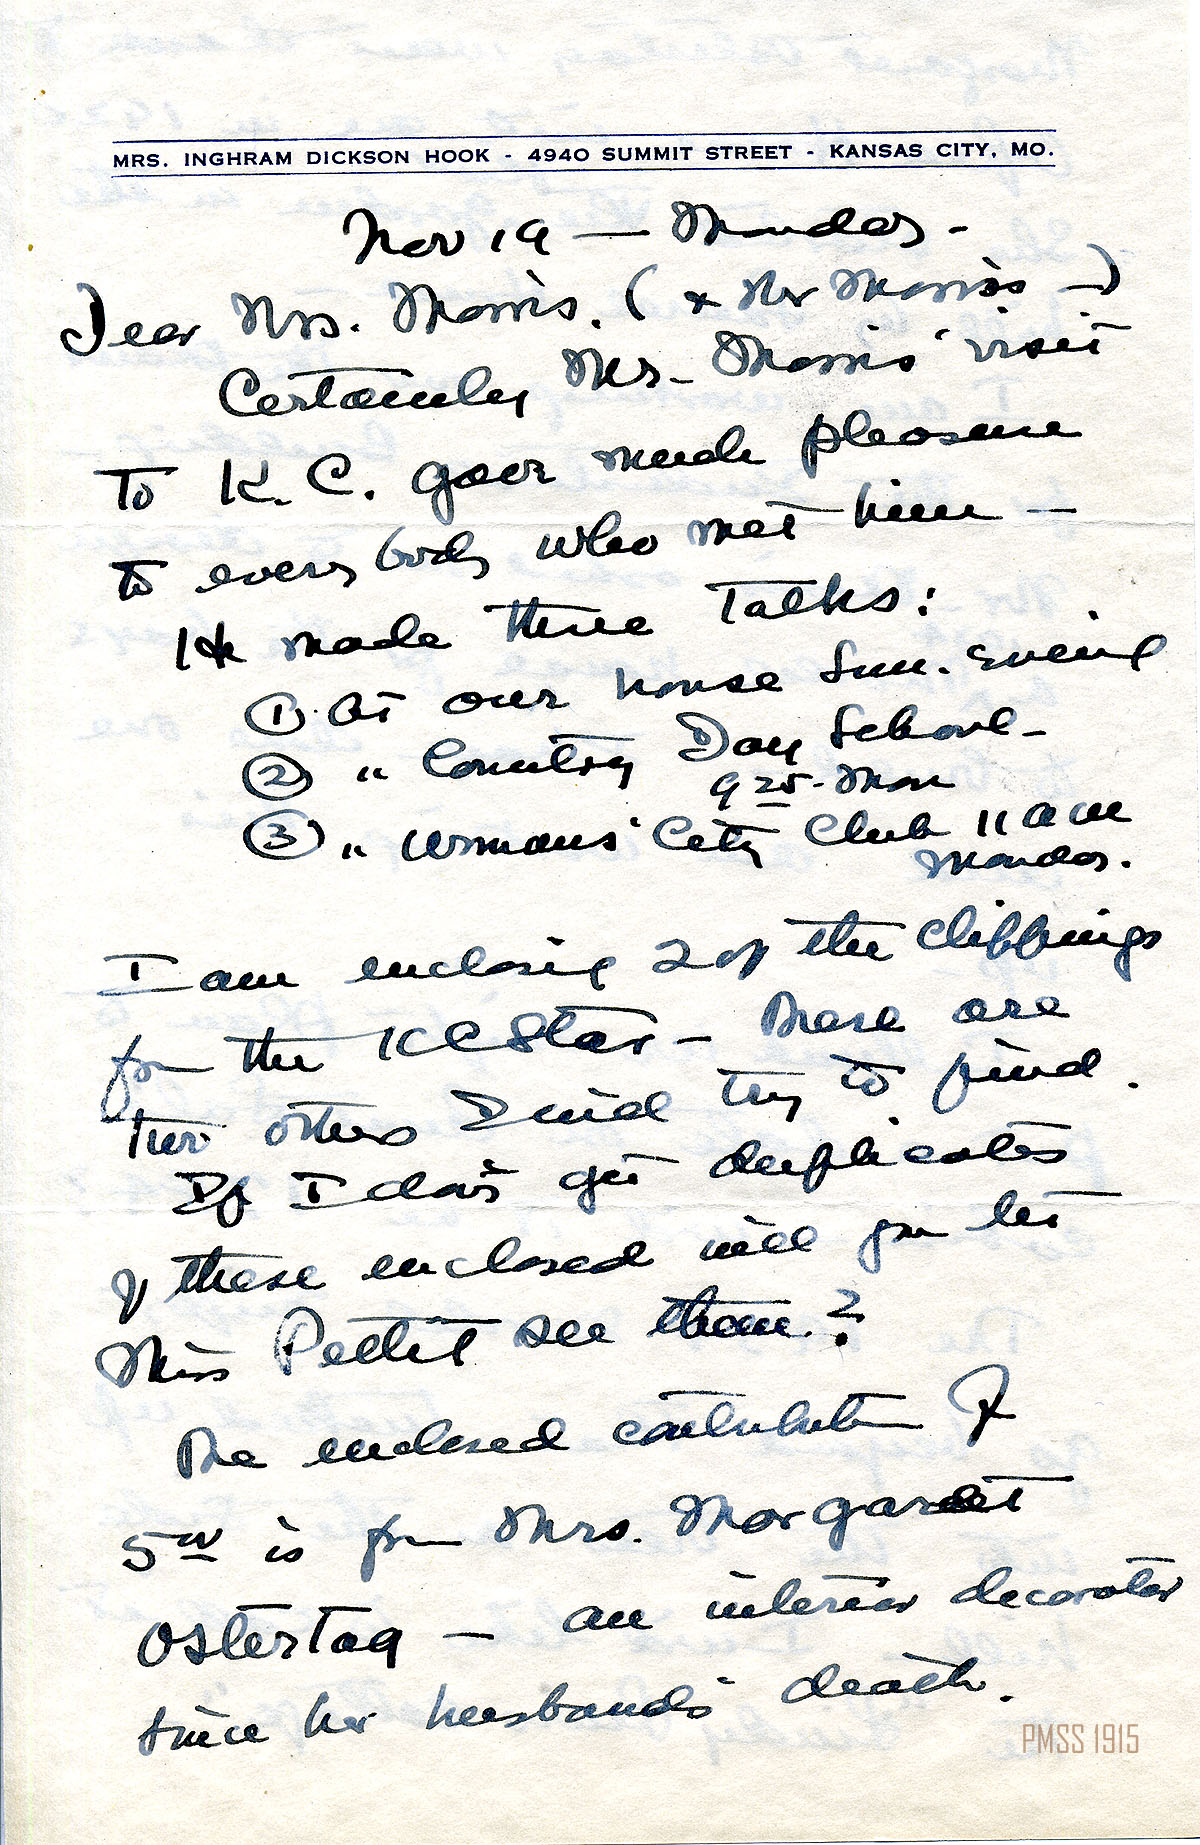 MRS. INGHRAM DICKSON HOOK - 4940 SUMMIT STREET - KANSAS CITY, MO.
Nov 19 — Monday -
Dear Mrs. Morris. (& Mr Morris —)
Certainly Mr. Morris' visit
to K. C. gave much pleasure
to every body who met him —
He made three Talks:
① At our house Sun. evening
② " Country Day School -
9 25 - Mon
③ " Womans' City Club 11 am
Monday.
I am enclosing 2 of the clippings
from the KC Star — there are
two others I will try to find.
If I don't get duplicates
of these enclosed will you let
Miss Pettit see them?
The enclosed contribution of
5 00 is from Mrs. Margaret
Ostertag — an interior decorator
since her husband's death.
PMSS 1915